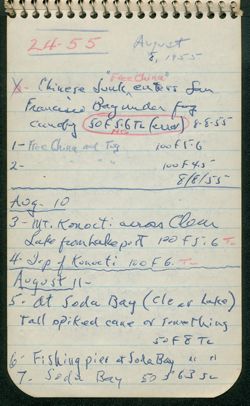 24-55
August
8, 1955
"Free China"
X- Chinese Junk enters San
Francisco Bay under fog
canopy 50 F 5.6 TL (red) 8-8-55
1- Free China and Tug 100 f 5.6
2- 100 F 4.5
8/8/55
Aug. 10
3- Mt. Konocti across Clear
Lake from Lakeport 100 F 5.6 TL
4- Top of Konocti 100 F 6. TL
August 11-
5. at Soda Bay (Clear Lake)
Tall spiked cane or something
50 F 8 TL
6- Fishing pier at Soda Bay " "
7. Soda Bay 50